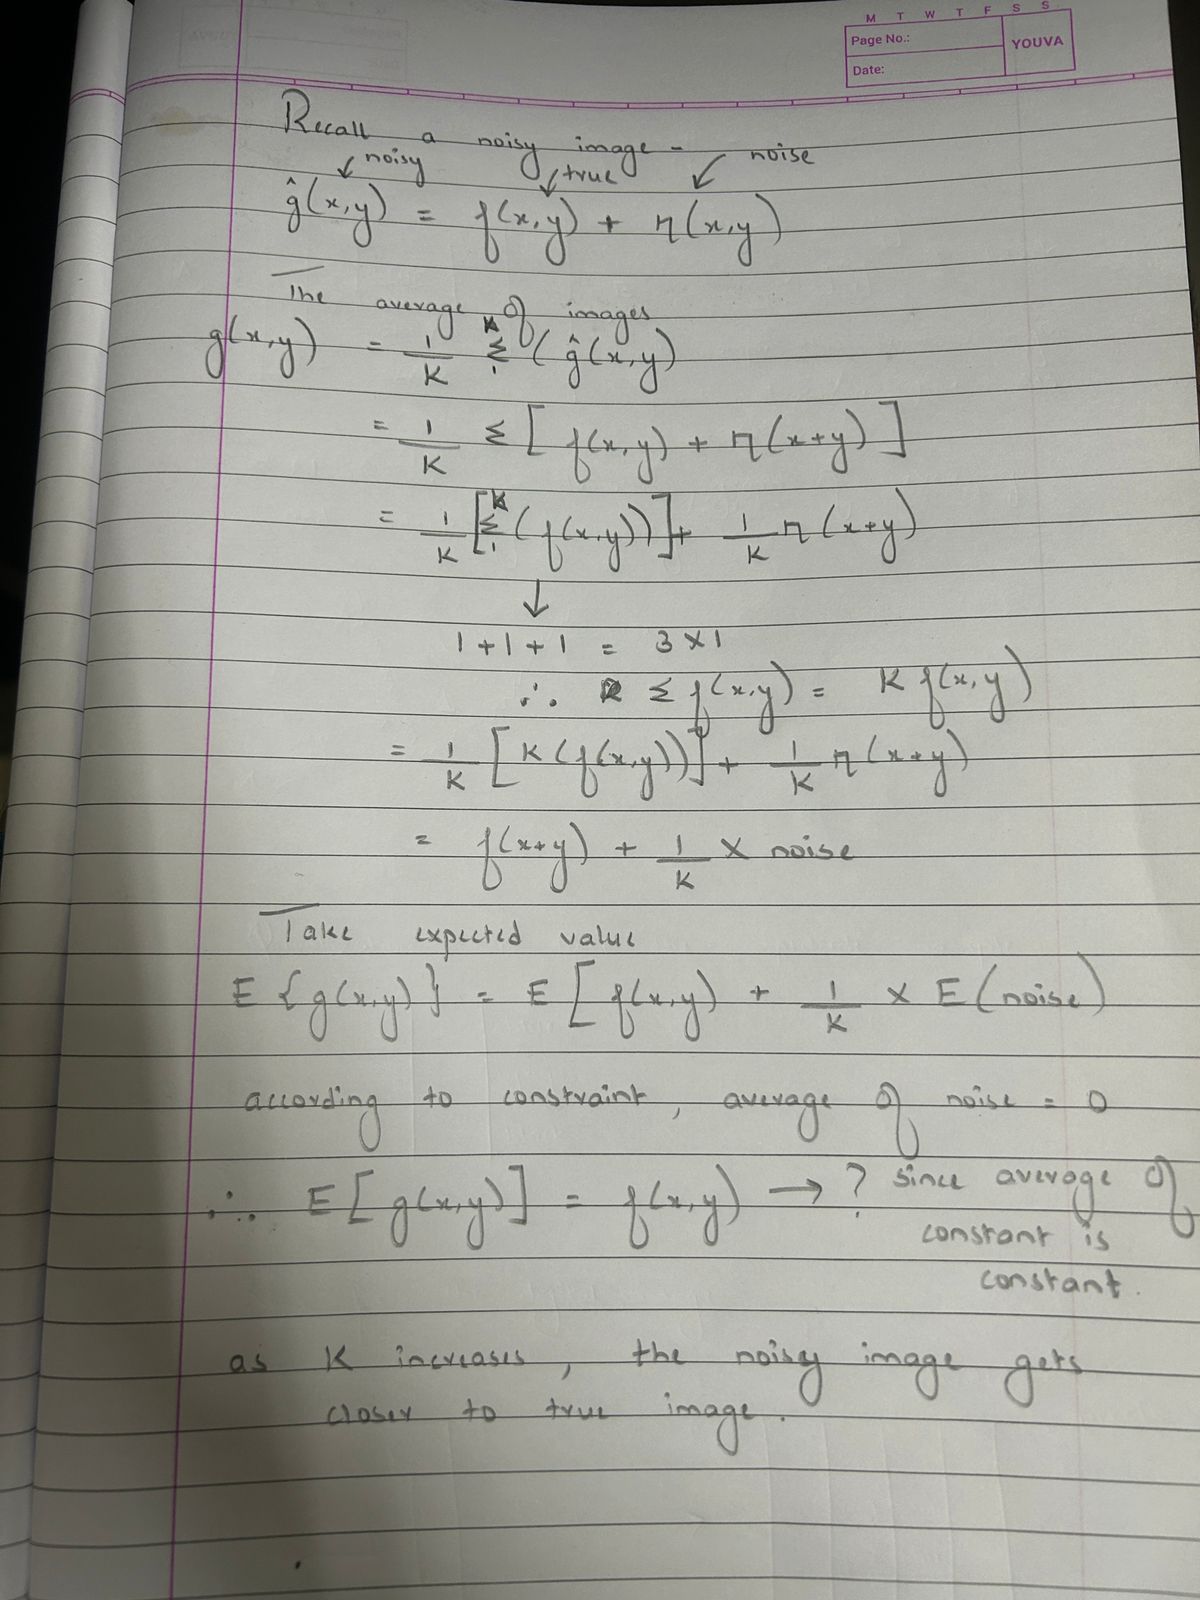 M T W T F S S
Page No.:
YOUVA
Date:
Recall a noisy image -
↙ noisy ↙ true ↙ noise
ĝ(x,y) = f(x,y) + η(x,y)
The average of images
g(x,y) = 1/K Σ₁ᴷ (ĝ(x,y)
= 1/K Σ [f(x,y) + η(x+y)]
= 1/K [Σ₁ᴷ (f(x,y))] + 1/K η(x+y)
↓
1+1+1 = 3×1
∴ Σ f(x,y) = K f(x,y)
= 1/K [K(f(x,y))] + 1/K η(x+y)
= f(x+y) + 1/K × noise
Take expected value
E {g(x,y)} = E [f(x,y) + 1/K × E(noise)
according to constraint, average of noise = 0
∴ E[g(x,y)] = f(x,y) → ? since average of
constant is
constant.
as K increases, the noisy image gets
closer to true image.